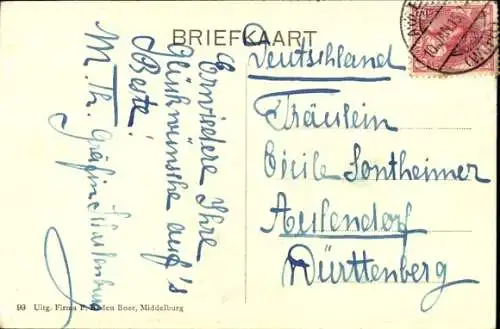 BRIEFKAART
Erwiedere Ihre
Glückwünsche auf's
Beste!
M. Th. Gräfin
Deutschland
Fräulein
Cicile Sontheimer
Aulendorf
Württenberg
99 Uitg. Firma F. B. den Boer, Middelburg